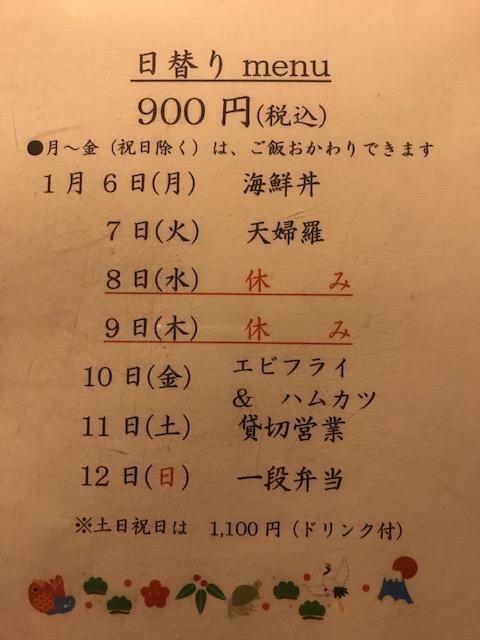 日替り menu
900 円(税込)
●月～金（祝日除く）は、ご飯おかわりできます
1月 6日(月) 海鮮丼
7日(火) 天婦羅
8日(水) 休 み
9日(木) 休 み
10日(金) エビフライ
& ハムカツ
11日(土) 貸切営業
12日(日) 一段弁当
※土日祝日は 1,100円（ドリンク付）